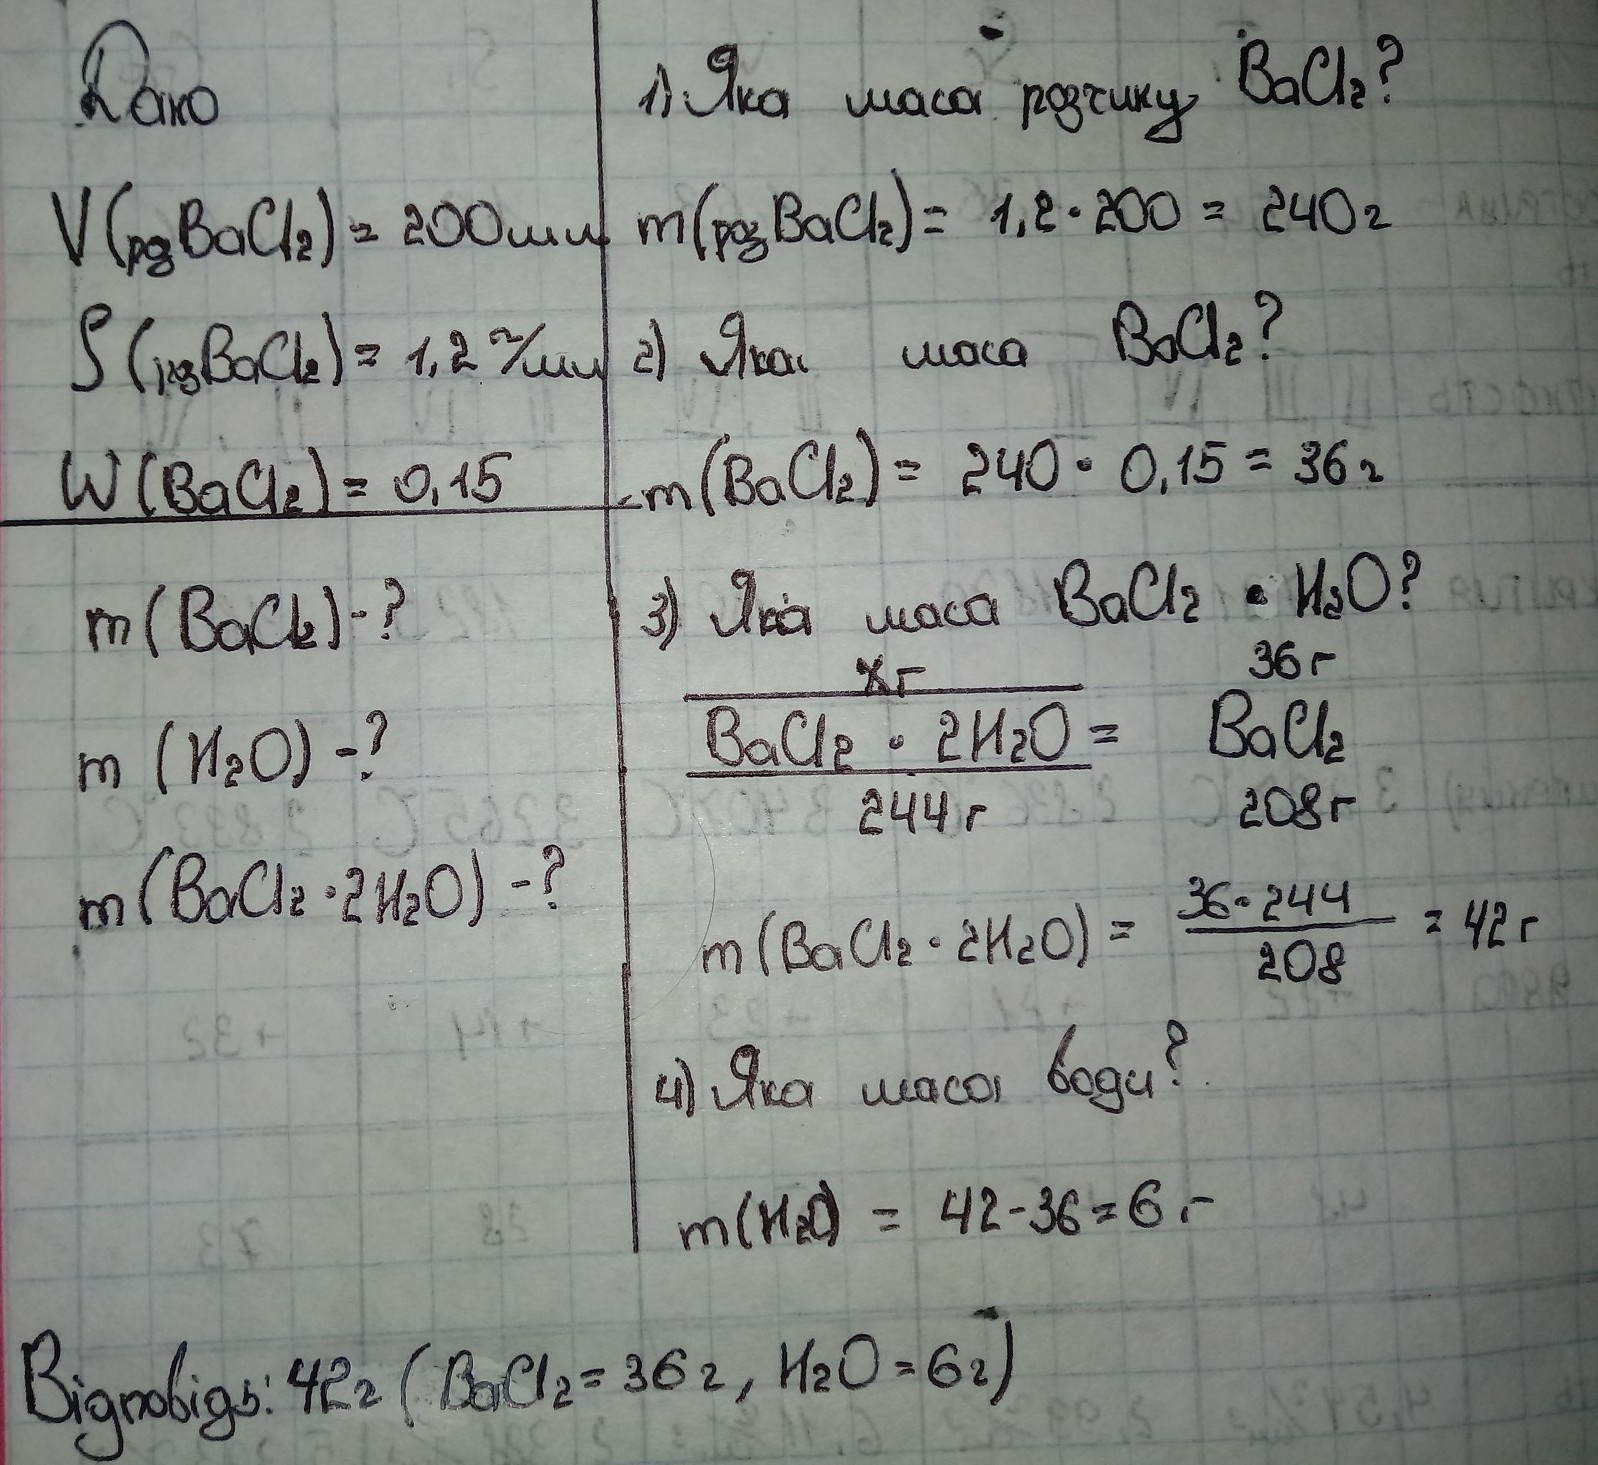 Дано
V(розBaCl2) = 200мл
ρ(розBaCl2) = 1,2 г/мл
W(BaCl2) = 0,15
m(BaCl2) -?
m (H2O) -?
m(BaCl2 · 2H2O) -?
1) Яка маса розчину BaCl2?
m(розBaCl2) = 1,2 · 200 = 240г
2) Яка маса BaCl2?
m(BaCl2) = 240 · 0,15 = 36г
3) Яка маса BaCl2 · H2O?
xг 36г
BaCl2 · 2H2O = BaCl2
244г 208г
m(BaCl2 · 2H2O) = 36·244 / 208 = 42г
4) Яка маса води?
m(H2O) = 42-36=6г
Відповідь: 42г (BaCl2 = 36г, H2O = 6г)